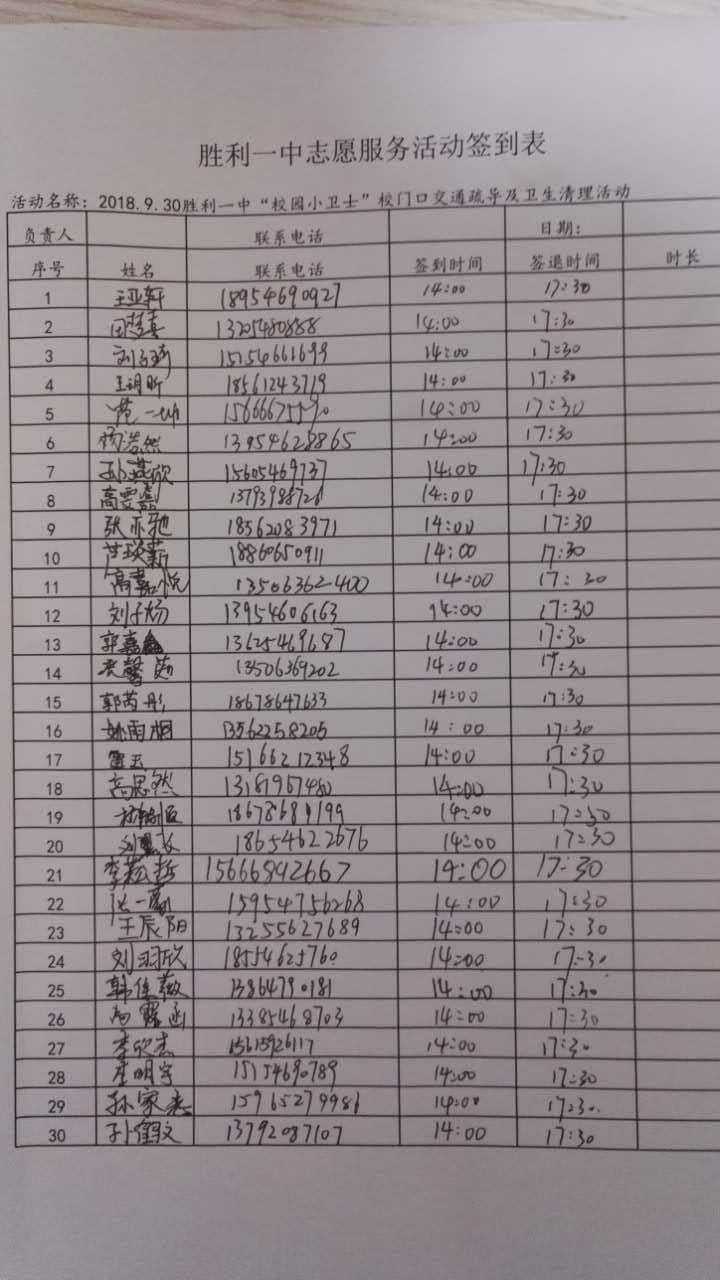 胜利一中志愿服务活动签到表
活动名称：2018.9.30胜利一中“校园小卫士”校门口交通疏导及卫生清理活动
负责人 联系电话 日期：
序号 姓名 联系电话 签到时间 签退时间 时长
1 王亚轩 18954690927 14:00 17:30
2 13205480888 14:00 17:30
3 15154661699 14:00 17:30
4 18561243719 14:00 17:30
5 范一 15666675590 14:00 17:30
6 杨浩然 13954628865 14:00 17:30
7 孙燕欣 15605469737 14:00 17:30
8 高雯 13793988726 14:00 17:30
9 张亦驰 18562083971 14:00 17:30
10 18860650911 14:00 17:30
11 高嘉悦 13506362400 14:00 17:30
12 刘子杨 13954606163 14:00 17:30
13 郭嘉鑫 13625469687 14:00 17:30
14 13506369202 14:00 17:30
15 郭芮彤 18678647633 14:00 17:30
16 姚雨桐 13562258205 14:00 17:30
17 雷云 15166212348 14:00 17:30
18 高思然 13181967480 14:00 17:30
19 18678689199 14:00 17:30
20 18654622676 14:00 17:30
21 15666842667 14:00 17:30
22 张一 15954756268 14:00 17:30
23 王辰阳 13255627689 14:00 17:30
24 刘羽欣 18554625760 14:00 17:30
25 韩佳薇 13864790181 14:00 17:30
26 13385468703 14:00 17:30
27 李欣杰 15615926117 14:00 17:30
28 李明宇 15154690789 14:00 17:30
29 孙家 15965279986 14:00 17:30
30 13792087107 14:00 17:30